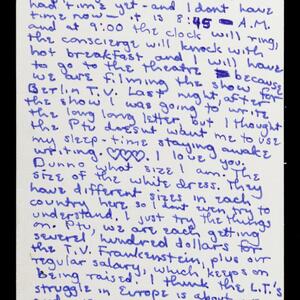 had time yet - and I dont have
time now - it is 8:45 - A.M.
and at 9:00 the clock will ring,
the conscierge will knock with
hot breakfast, and I will have
to go to the theatre because
we are filming the show for
Berlin T.V. Last night after
the show I was going to write
the long long letter, but I thought
the Ptu doesnt want me to use
my sleep-time staying awake
writing. ♡♡♡. I love you.
Dunno what size I am. The
size of the white dress. They
have different sizes in each
country here so I dont even try to
understand. I just try the things
on. Ptu, we are each getting
several hundred dollars for
the T.V. Frankenstein plus our
regular salary, which keeps on
being raised. I think the L.T.'s
struggle in Europe is about